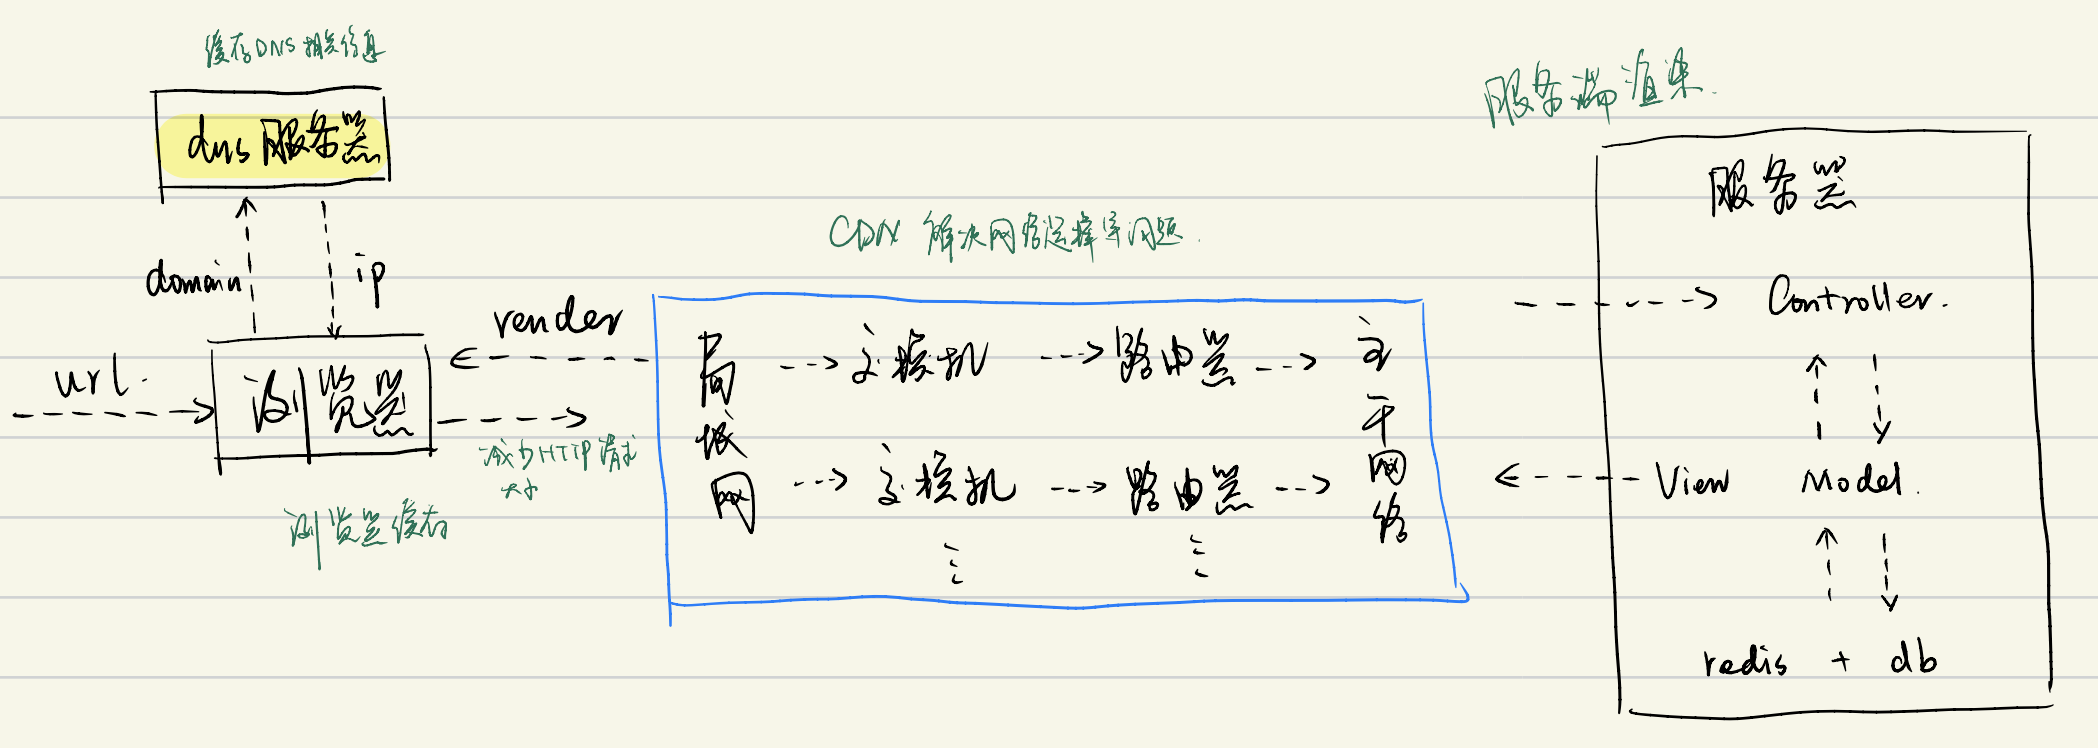 缓存DNS相关信息
dns服务器
domain
ip
url.
浏览器
render
减少HTTP请求
大小
浏览器缓存
CDN 解决网络选择等问题.
局域网
主换机
路由器
主干网络
主换机
路由器
服务端渲染.
服务器
Controller.
View
Model.
redis + db